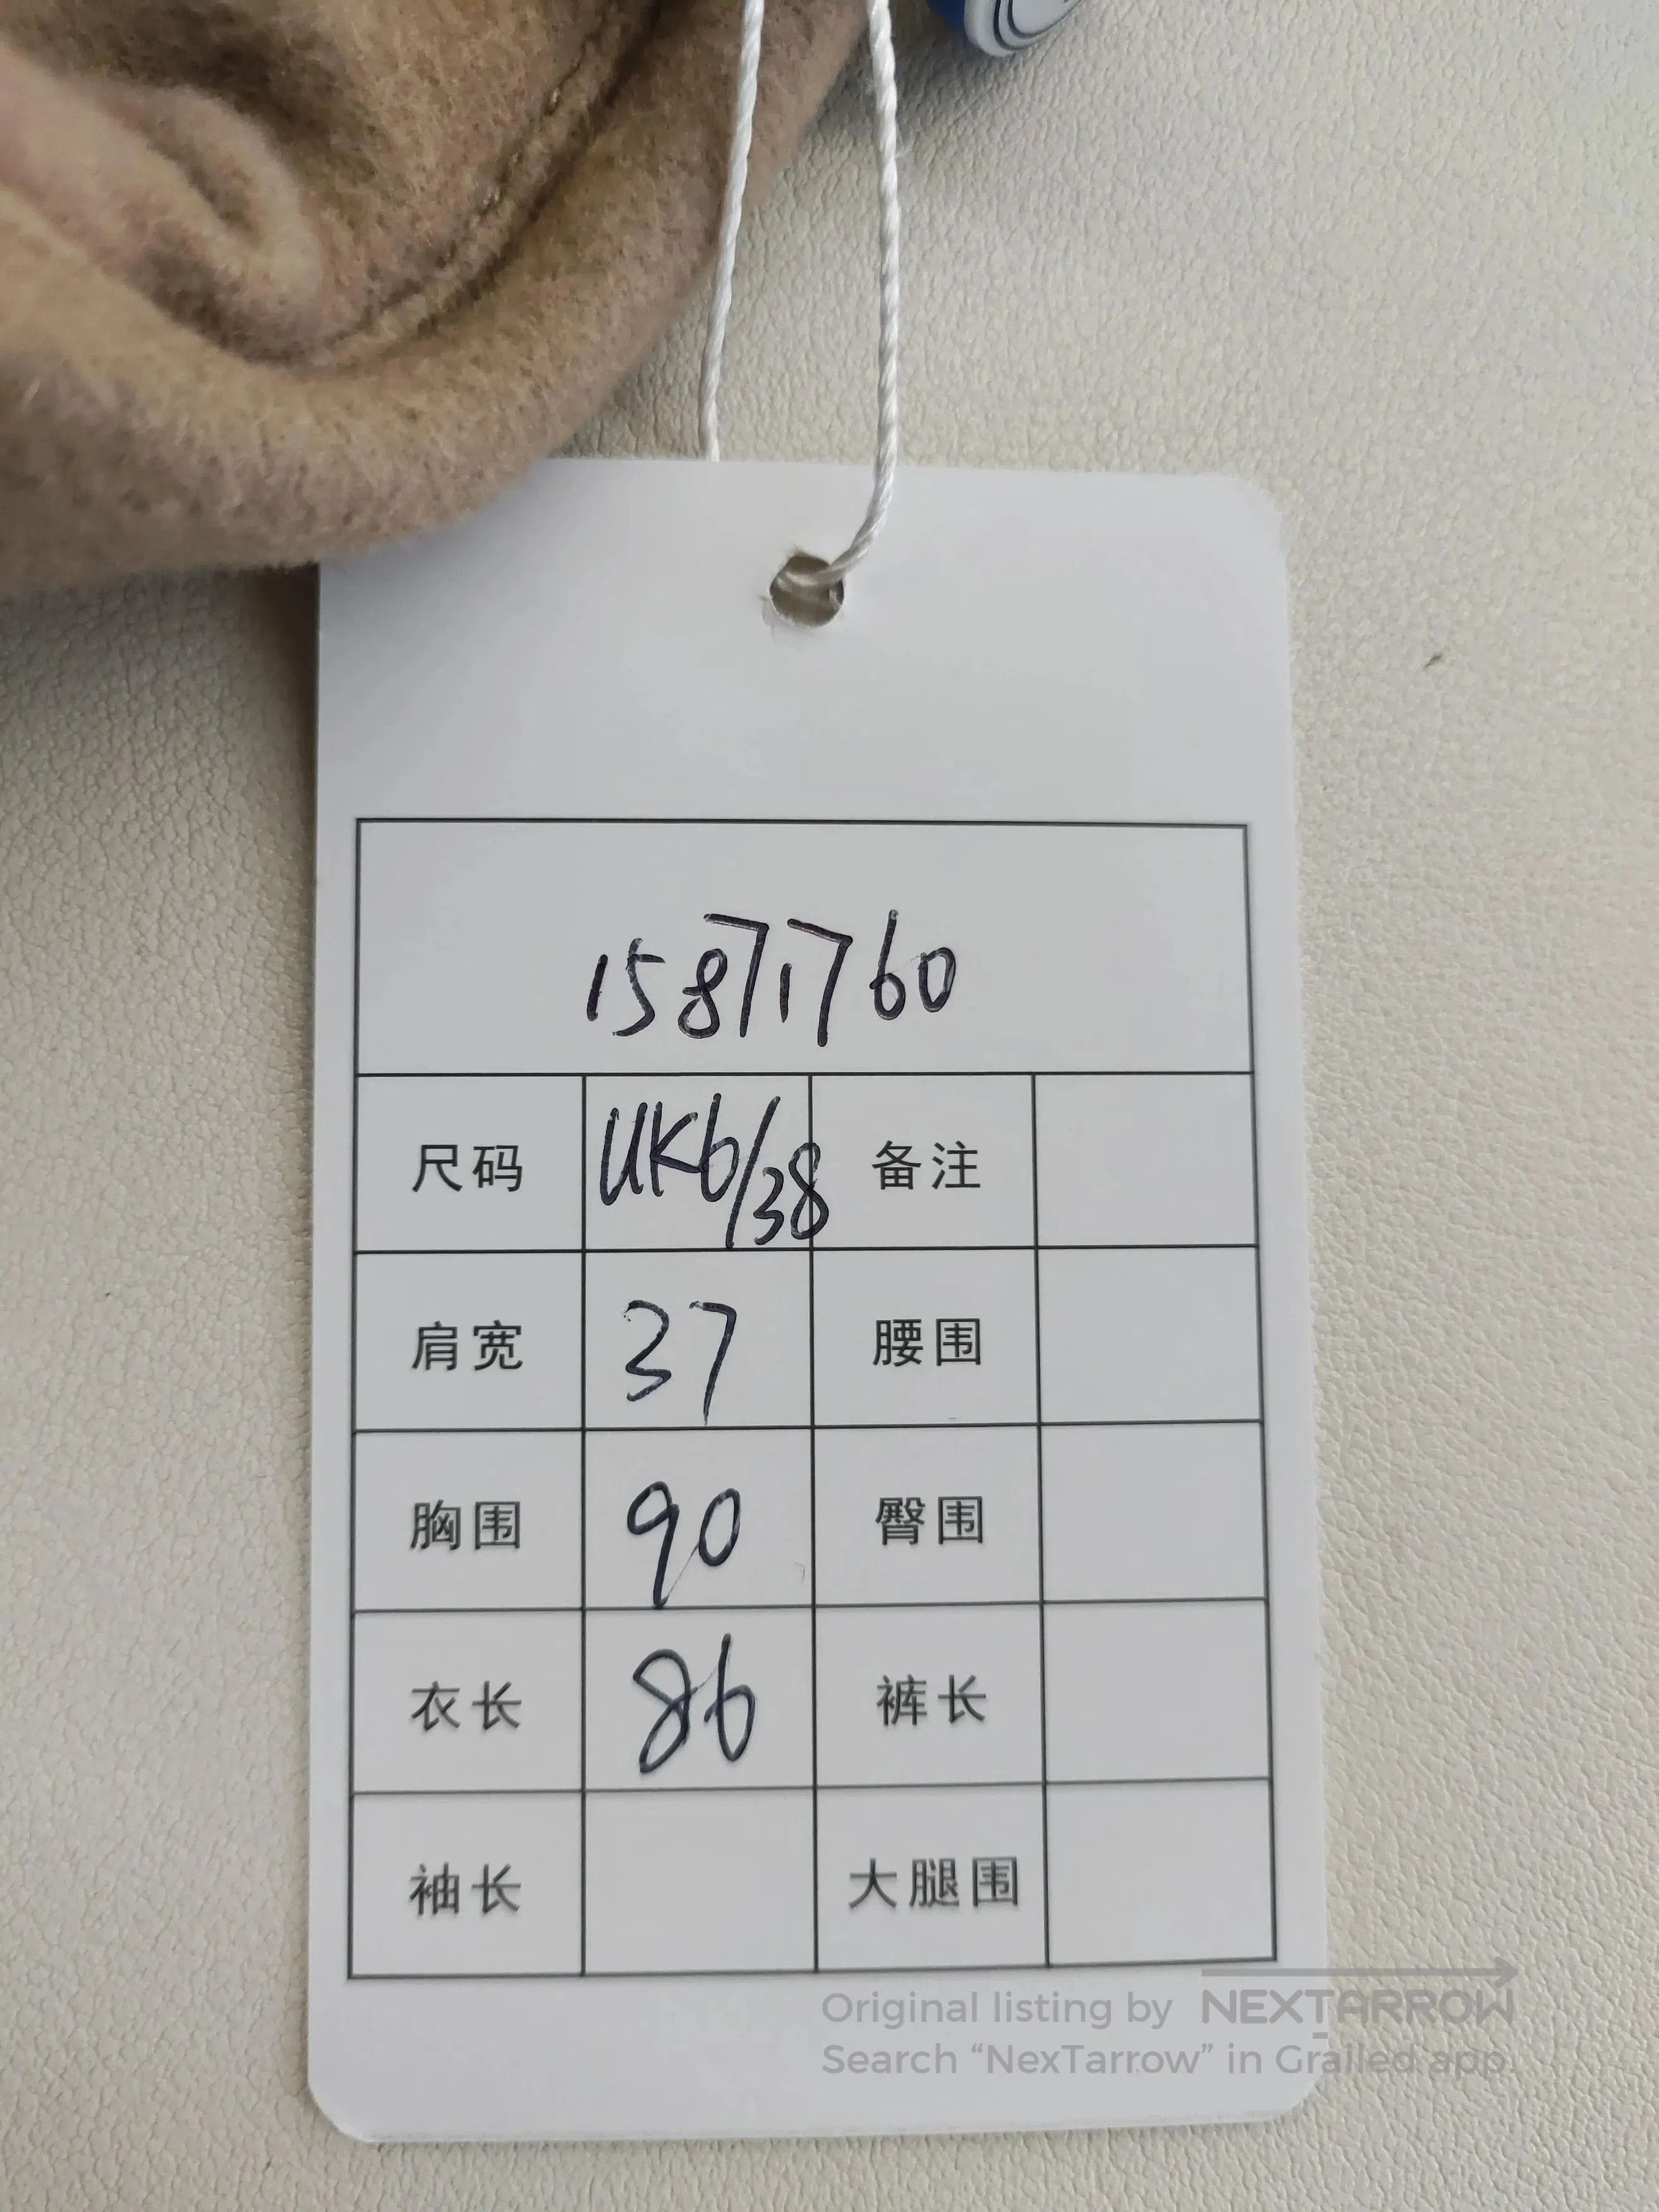 15871760
尺码 UK6/38 备注
肩宽 37 腰围
胸围 90 臀围
衣长 86 裤长
袖长 大腿围
Original listing by NEXTARROW
Search “NexTarrow” in Grailed app.